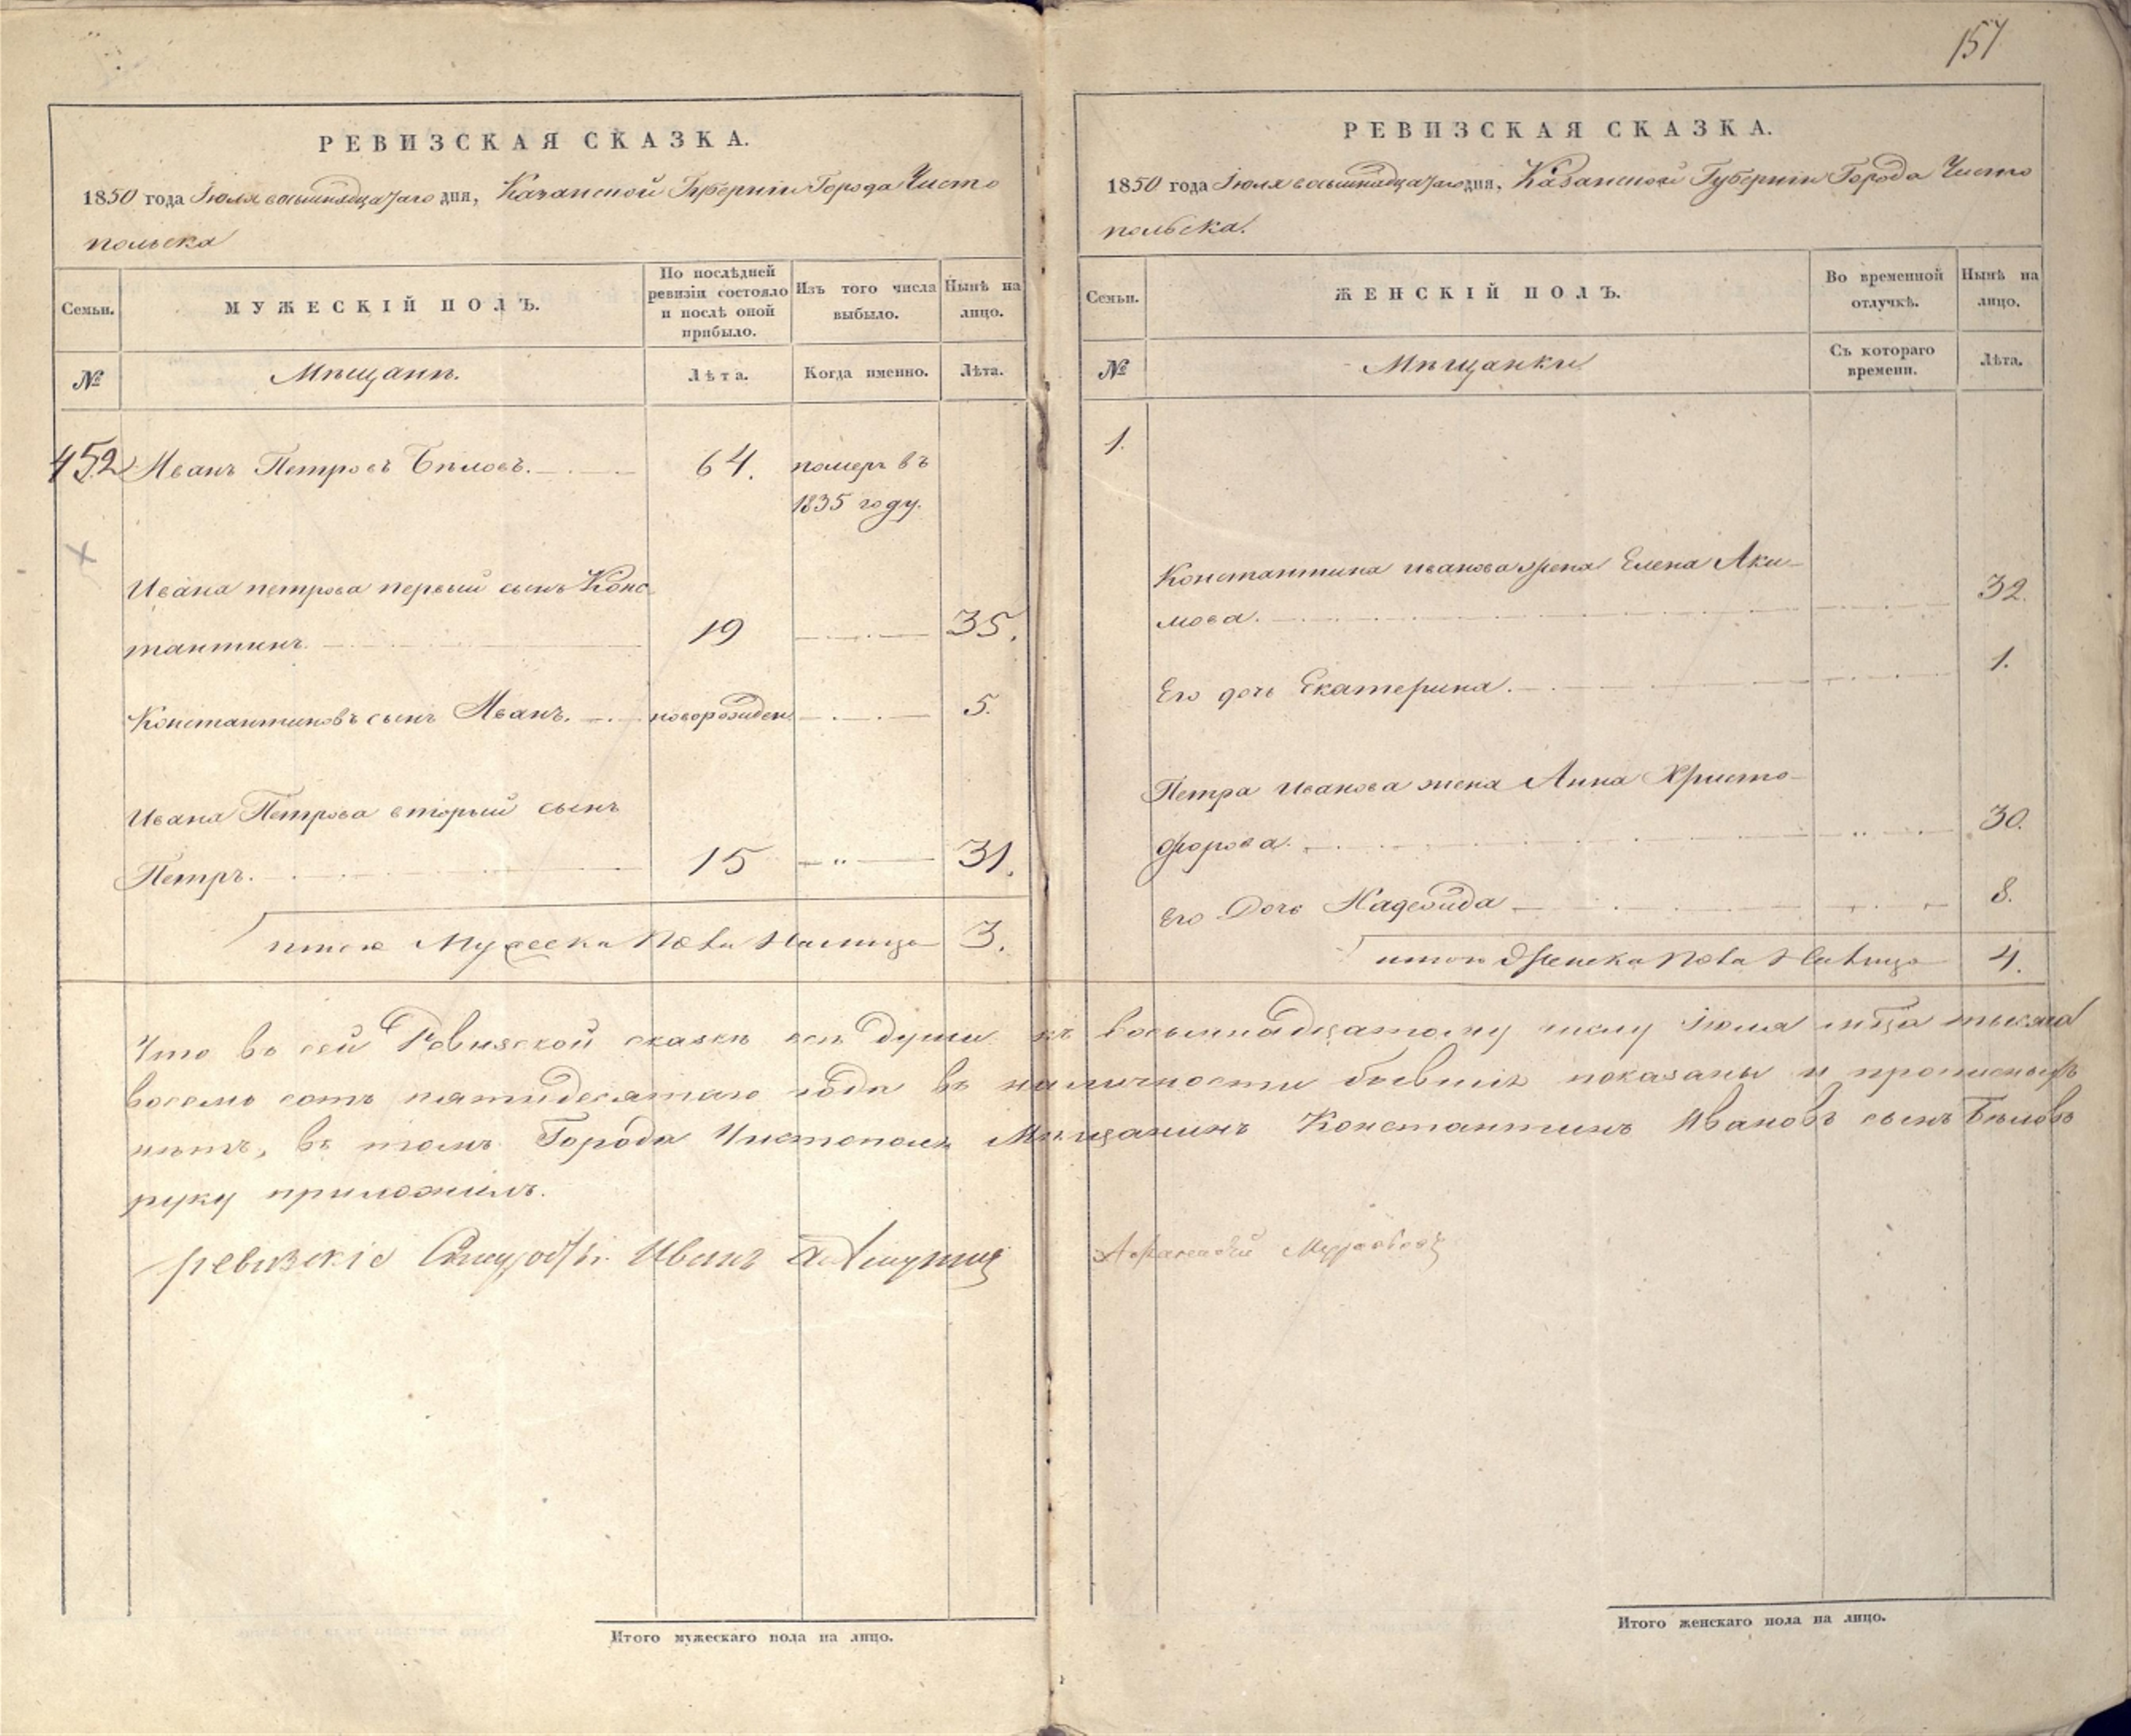 РЕВИЗСКАЯ СКАЗКА.
1850 года Іюля восьмнадцатаго дня, Казанской Губерніи Города Чисто
польска
Семьи.
МУЖЕСКІЙ ПОЛЪ.
По послѣдней ревизіи состояло и послѣ оной прибыло.
Изъ того числа выбыло.
Нынѣ на лицо.
№
Мѣщанѣ.
Лѣта.
Когда именно.
Лѣта.
452 Иванъ Петровъ Бѣловъ. 64. померъ въ
1835 году.
Ивана петрова первый сынъ Конс
тантинъ. 19 35.
Константиновъ сынъ Иванъ. новорожден. 5.
Ивана Петрова вторый сынъ
Петръ. 15 31.
итого Мужеска Пола Налицо 3.
Что въ сей Ревизской сказкѣ всѣ души
восемь сотъ пятидесятаго года въ
нѣтъ, въ томъ Города Чистополя
руку приложилъ.
ревизскіе Иванъ
157
РЕВИЗСКАЯ СКАЗКА.
1850 года Іюля восьмнадцатаго дня, Казанской Губерніи Города Чисто
польска.
Семьи.
ЖЕНСКІЙ ПОЛЪ.
Во временной отлучкѣ.
Нынѣ на лицо.
№
Мѣщанки
Съ котораго времени.
Лѣта.
1.
Константина иванова жена Елена Аки-
мова. 32.
Его дочь Екатерина. 1.
Петра иванова жена Анна Христо-
форова. 30.
Его Дочь Надежда 8.
итого Женска Пола Налицо 4.
къ восьмнадцатому числу Іюля мца тысяча
наличности бывшіе показаны и прописныхъ
Мѣщанинъ Константинъ Ивановъ сынъ Бѣловъ
Итого мужескаго пола на лицо.
Итого женскаго пола на лицо.